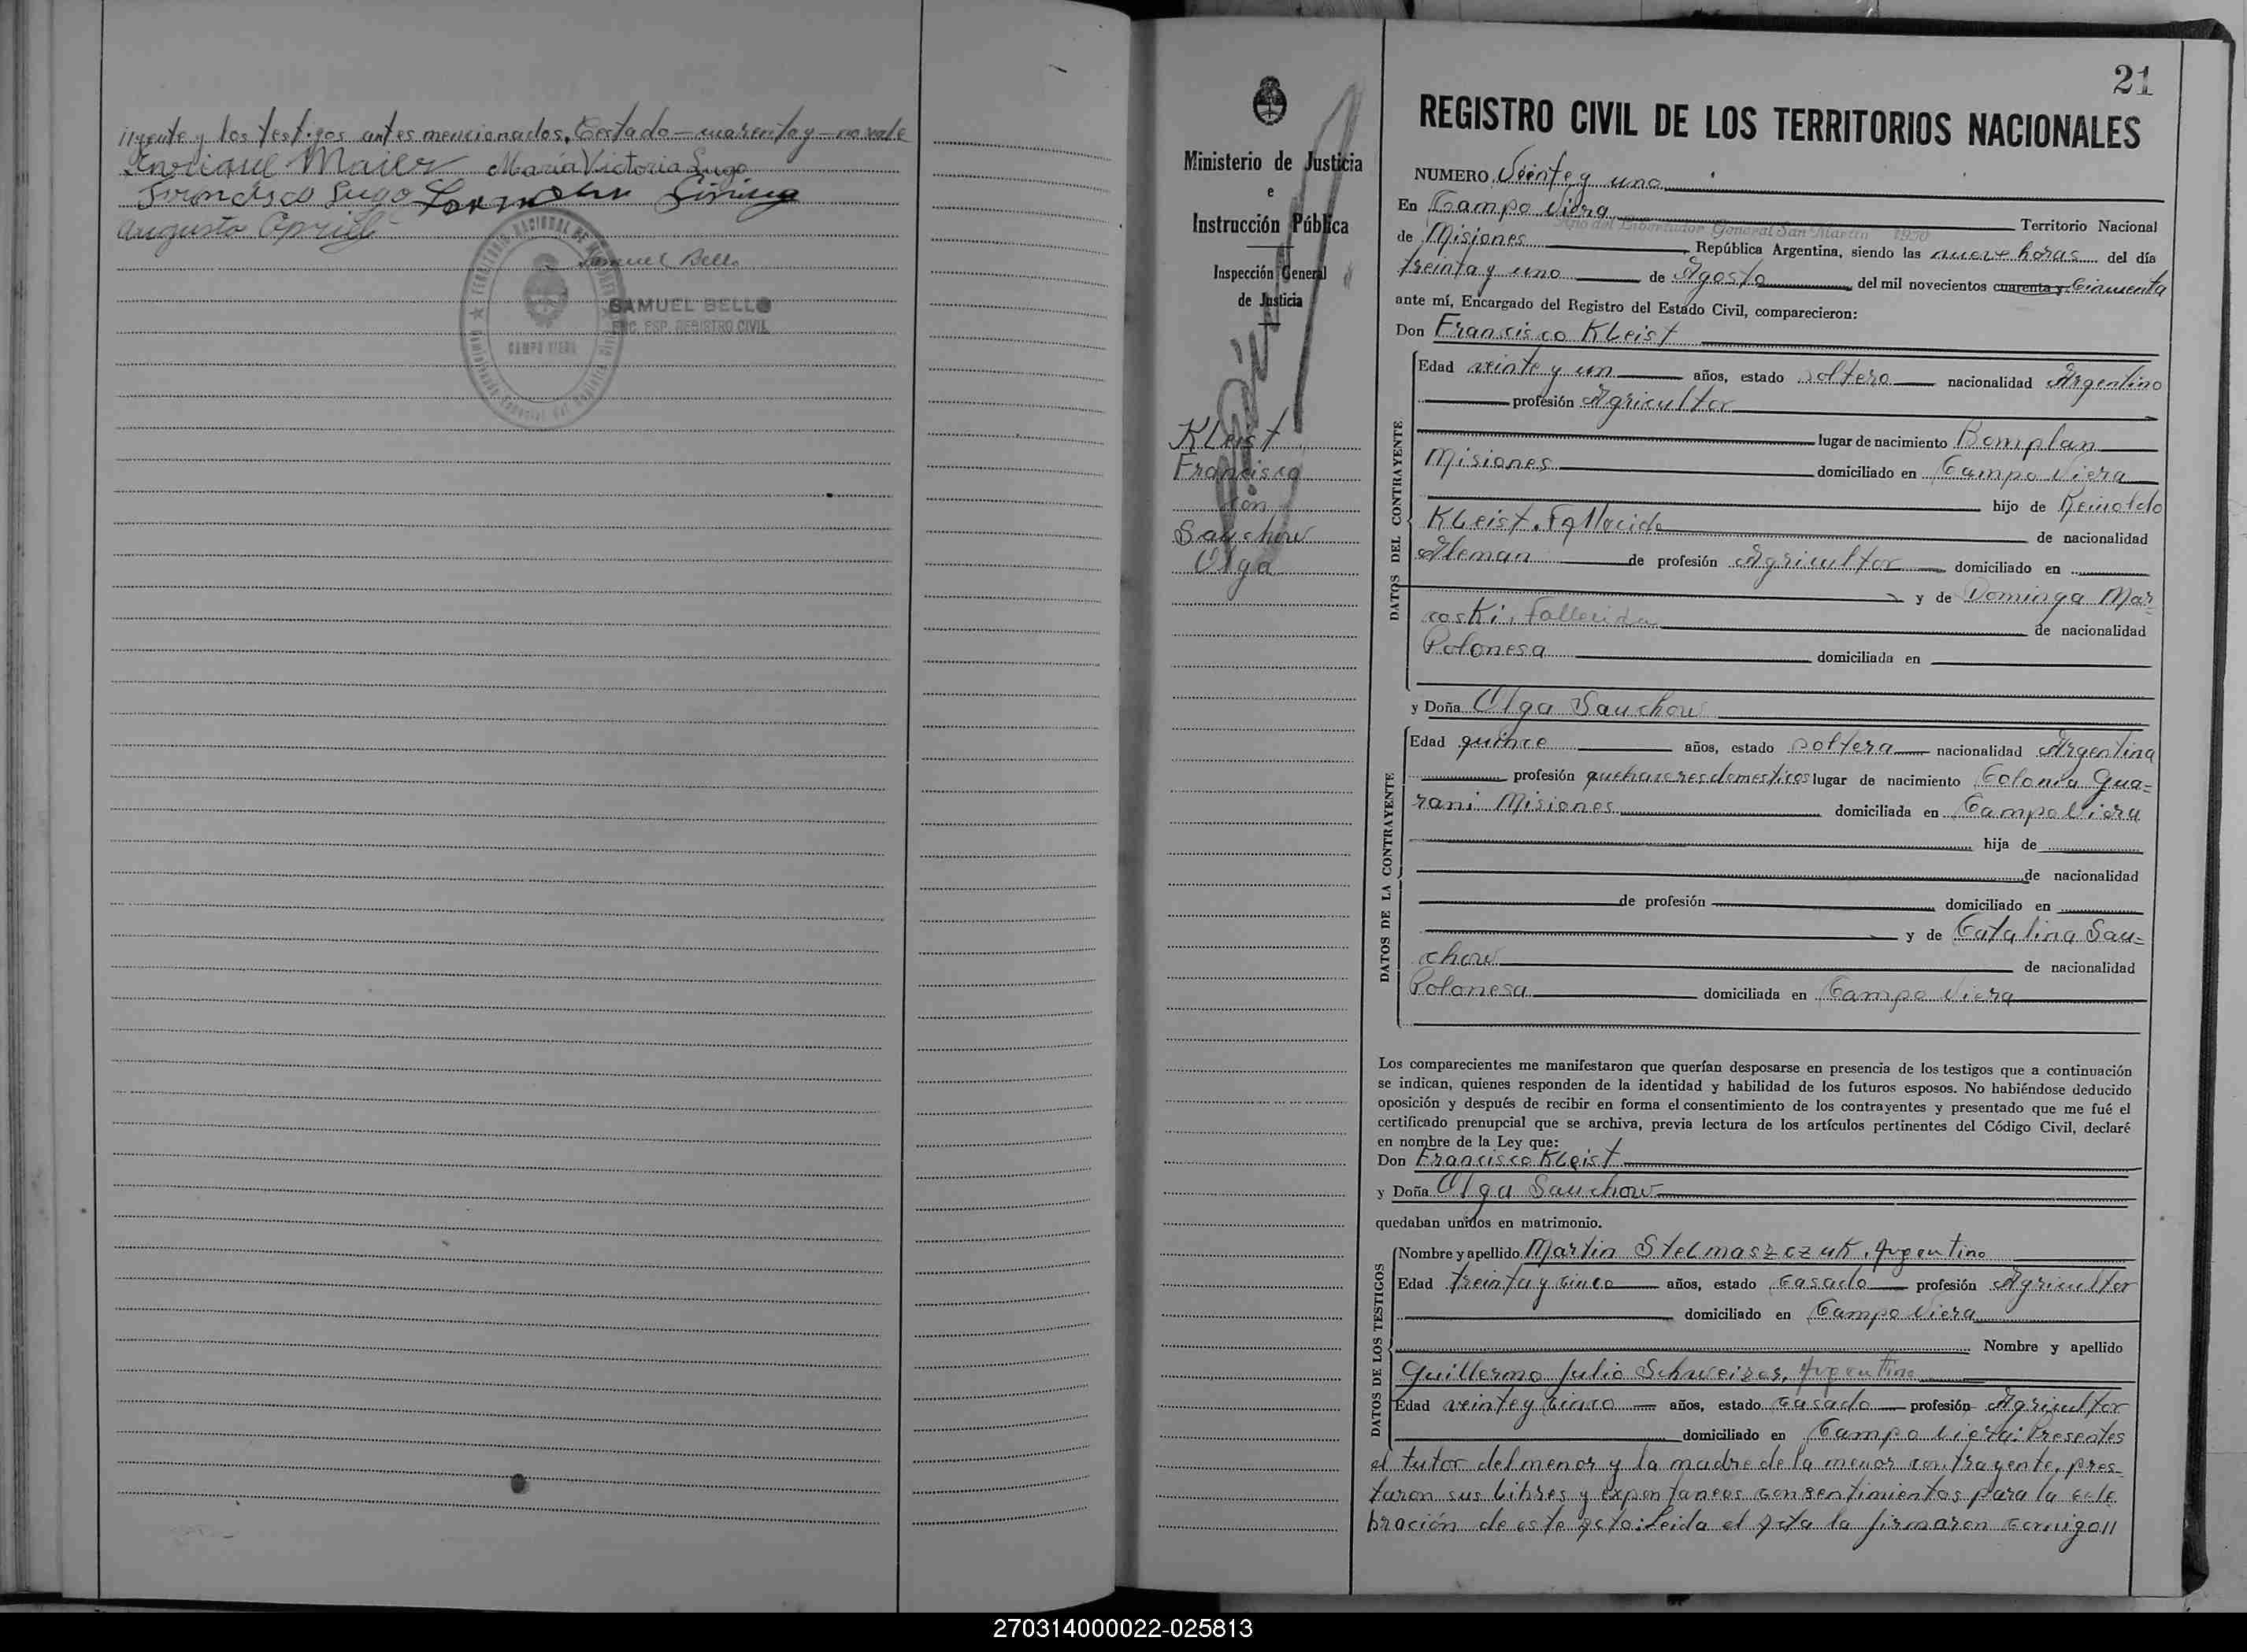 //yente y los testigos antes mencionados. Testado – cuarenta y – no vale
Enrique Maier María Victoria Lugo
Francisco Lugo
Augusto
Samuel Bello
SAMUEL BELLO
ENC. ESP. REGISTRO CIVIL
CAMPO VIERA
Ministerio de Justicia
e
Instrucción Pública
Inspección General
de Justicia
KLeist
Francisco
con
Sauchow
Olga
21
REGISTRO CIVIL DE LOS TERRITORIOS NACIONALES
NUMERO Veinte y uno
En Campo Viera Territorio Nacional
Año del Libertador General San Martín 1950
de Misiones República Argentina, siendo las nueve horas del día
treinta y uno de Agosto del mil novecientos cuarenta y Cincuenta
ante mí, Encargado del Registro del Estado Civil, comparecieron:
Don Francisco KLeist
DATOS DEL CONTRAYENTE
Edad veinte y un años, estado soltero nacionalidad Argentino
profesión Agricultor
lugar de nacimiento Bomplan
Misiones domiciliado en Campo Viera
hijo de Reinoldo
KLeist. Fallecido de nacionalidad
Aleman de profesión Agricultor domiciliado en
y de Dominga Mar=
coski. Fallecida de nacionalidad
Polonesa domiciliada en
y Doña Olga Sauchow
DATOS DE LA CONTRAYENTE
Edad quince años, estado soltera nacionalidad Argentina
profesión quehaceres domesticos lugar de nacimiento Colonia Gua=
rani Misiones domiciliada en Campo Viera
hija de
de nacionalidad
de profesión domiciliado en
y de Catalina Sau=
chow de nacionalidad
Polonesa domiciliada en Campo Viera
Los comparecientes me manifestaron que querían desposarse en presencia de los testigos que a continuación
se indican, quienes responden de la identidad y habilidad de los futuros esposos. No habiéndose deducido
oposición y después de recibir en forma el consentimiento de los contrayentes y presentado que me fué el
certificado prenupcial que se archiva, previa lectura de los artículos pertinentes del Código Civil, declaré
en nombre de la Ley que:
Don Francisco KLeist
y Doña Olga Sauchow
quedaban unidos en matrimonio.
DATOS DE LOS TESTIGOS
Nombre y apellido Martin SteLmaszczuk. Argentino
Edad treinta y cinco años, estado Casado profesión Agricultor
domiciliado en Campo Viera
Nombre y apellido
Guillermo Julio Schweizer, Argentino
Edad veinte y cinco años, estado Casado profesión Agricultor
domiciliado en Campo Viera: Presentes
el tutor del menor y la madre de la menor contrayente, pres=
taron sus libres y expontaneos consentimientos para la cele
bración de este acto: Leida el acta la firmaron comigo//
270314000022-025813